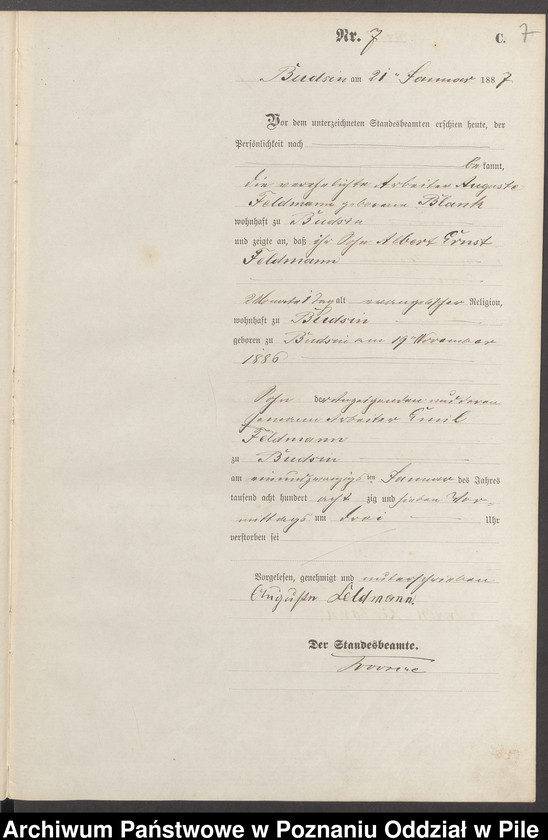 Nr. 7
C. 7
Budsin am 21ten Januar 1887
Vor dem unterzeichneten Standesbeamten erschien heute, der
Persönlichkeit nach
bekannt,
die verehelichte Arbeiter Auguste
Feldmann geborene Blank
wohnhaft zu Budsin
und zeigte an, daß ihr Sohn Albert Ernst
Feldmann
2 Monate 1 Tag alt evangelischer Religion,
wohnhaft zu Budsin
geboren zu Budsin am 19ten November
1886
Sohn der Anzeigenden und deren
Ehemann Arbeiter Emil
Feldmann
zu Budsin
am einundzwanzigsten Januar des Jahres
tausend acht hundert achtzig und sieben Vor-
mittags um drei Uhr
verstorben sei
Vorgelesen, genehmigt und unterschrieben
Auguste Feldmann.
Der Standesbeamte.
Archiwum Państwowe w Poznaniu Oddział w Pile